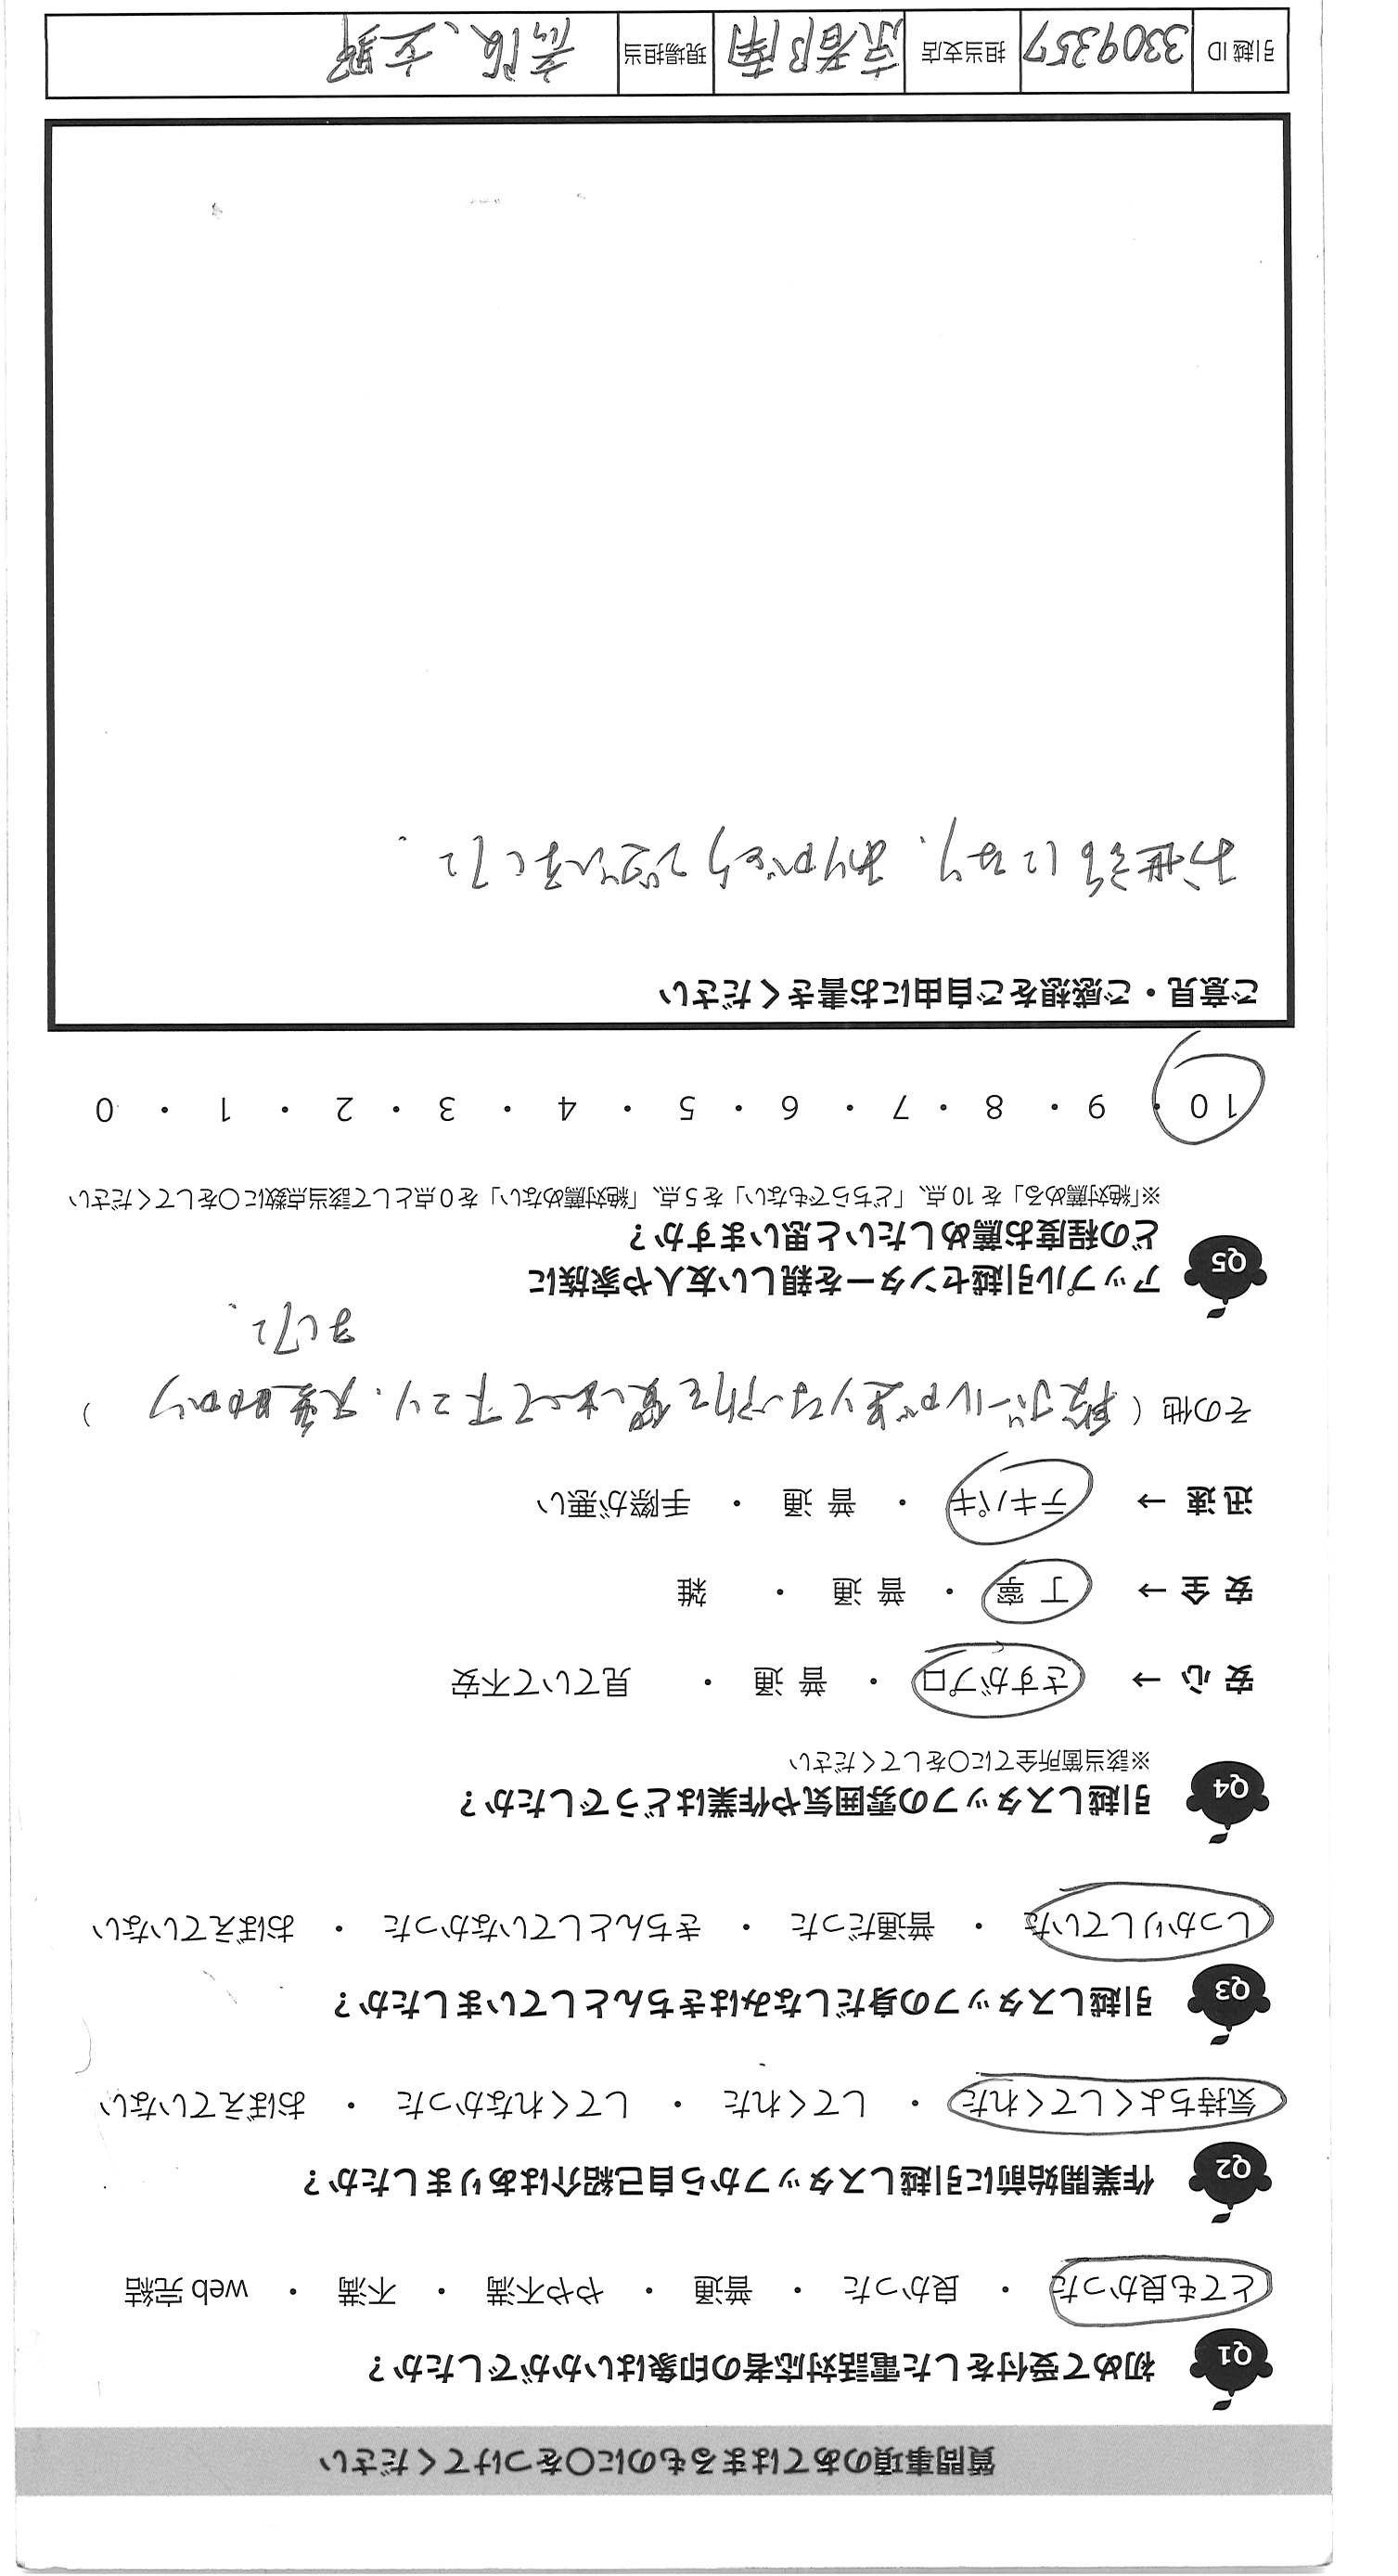 質問事項のあてはまるものに〇をつけてください
Q1 初めて受付をした電話対応者の印象はいかがでしたか？
とても良かった ・ 良かった ・ 普通 ・ やや不満 ・ 不満 ・ web完結
Q2 作業開始前に引越しスタッフから自己紹介はありましたか？
気持ちよくしてくれた ・ してくれた ・ してくれなかった ・ おぼえていない
Q3 引越しスタッフの身だしなみはきちんとしていましたか？
しっかりしていた ・ 普通だった ・ きちんとしていなかった ・ おぼえていない
Q4 引越しスタッフの雰囲気や作業はどうでしたか？
※該当箇所全てに〇をしてください
安心→ さすがプロ ・ 普通 ・ 見ていて不安
安全→ 丁寧 ・ 普通 ・ 雑
迅速→ テキパキ ・ 普通 ・ 手際が悪い
その他（段ボールが足りない所を下さり、大変助かり）
ました。
Q5 アップル引越センターを親しい友人や家族に
どの程度お薦めしたいと思いますか？
※「絶対薦める」を10点、「どちらでもない」を5点、「絶対薦めない」を0点として該当点数に〇をしてください
10 ・ 9 ・ 8 ・ 7 ・ 6 ・ 5 ・ 4 ・ 3 ・ 2 ・ 1 ・ 0
ご意見・ご感想をご自由にお書きください
お世話になり、ありがとうございました。
引越ID 3309357 担当支店 京都南 現場担当 高阪、